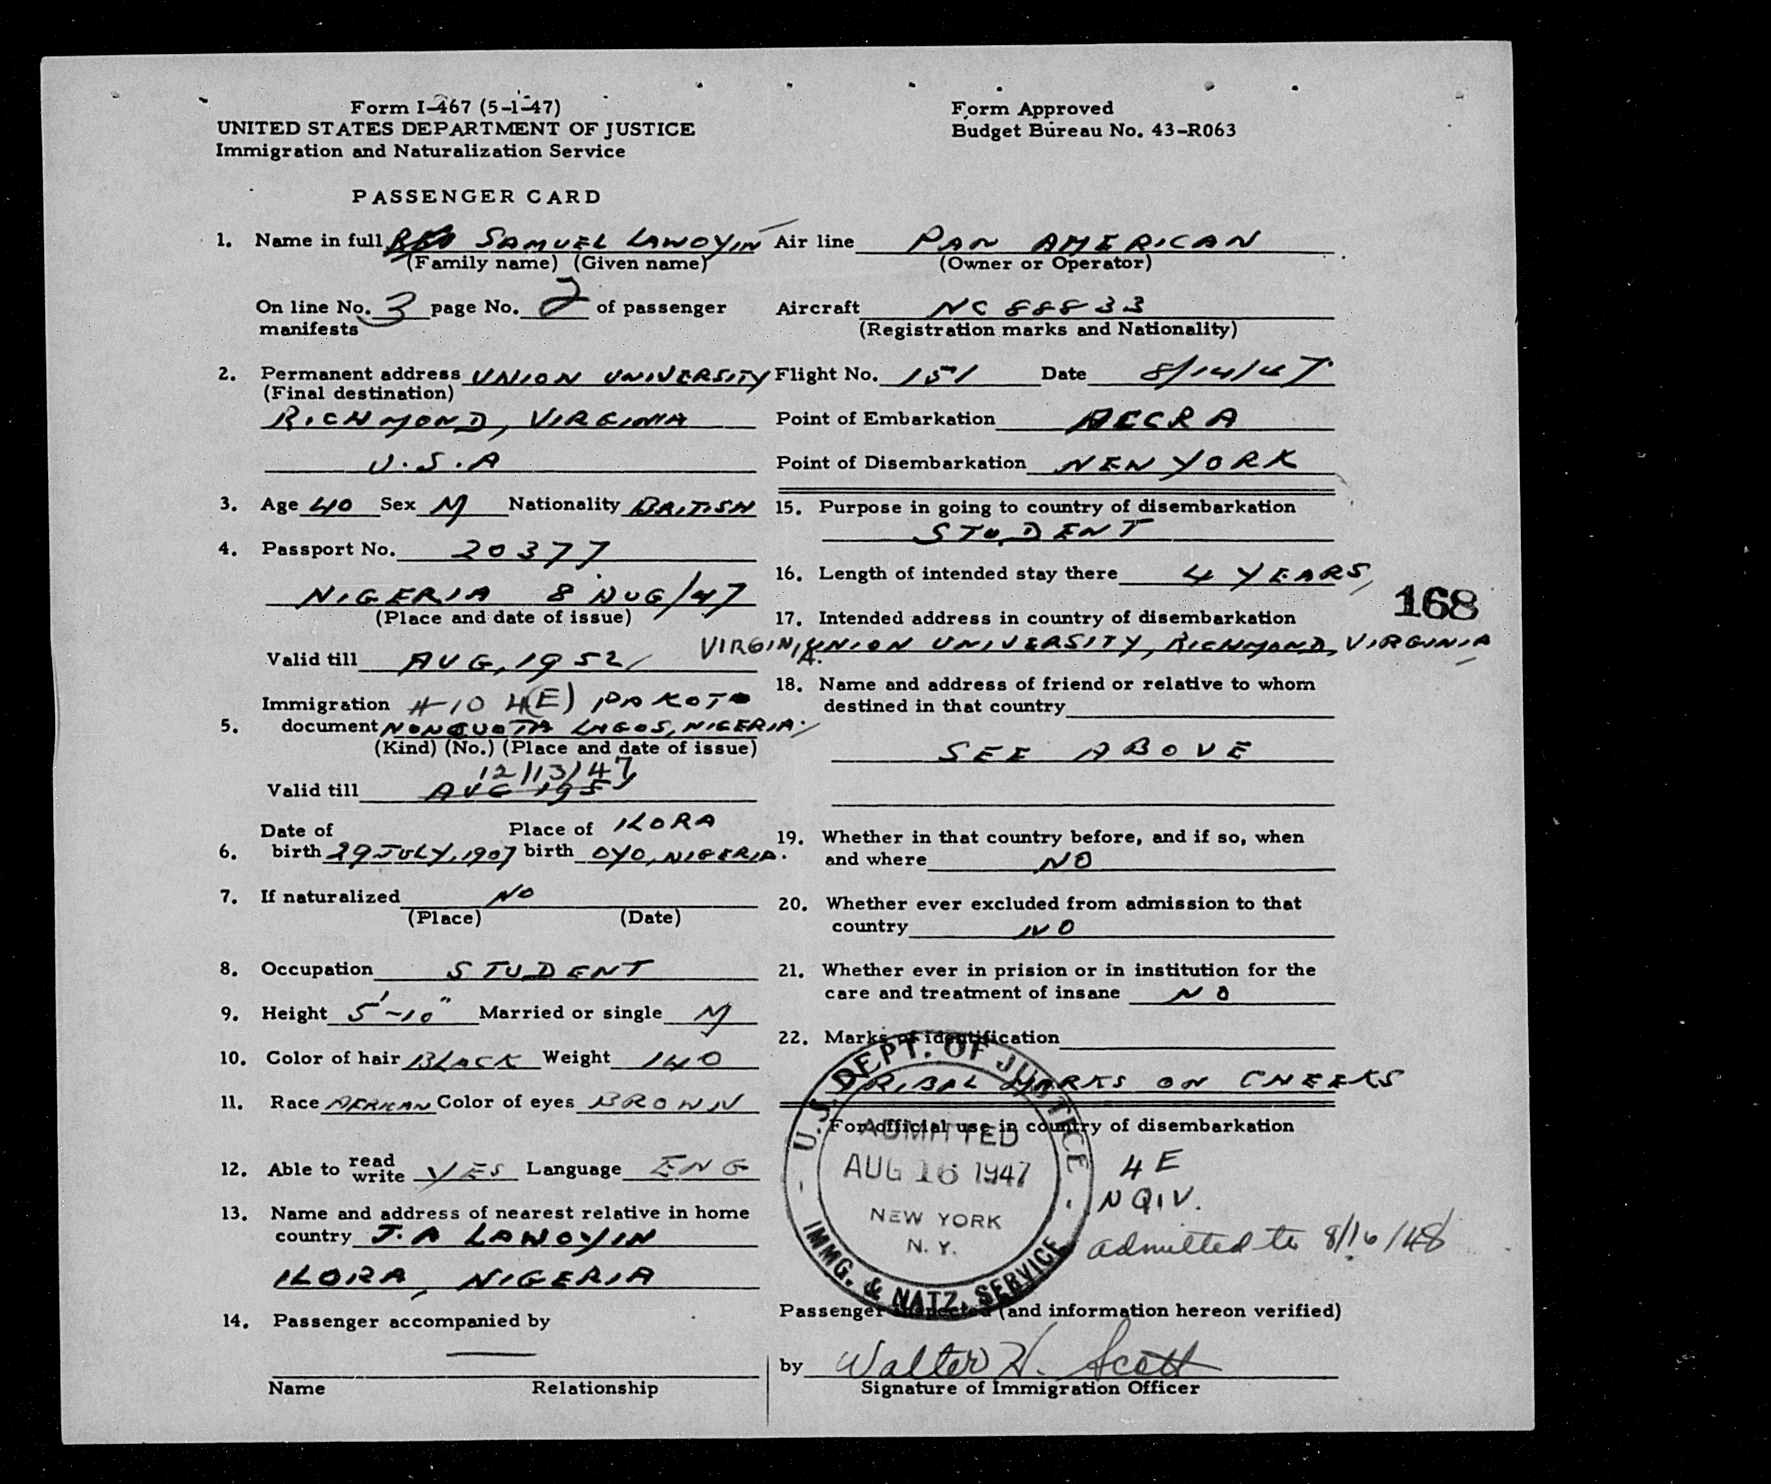 Form I-467 (5-1-47)
UNITED STATES DEPARTMENT OF JUSTICE
Immigration and Naturalization Service
PASSENGER CARD
Form Approved
Budget Bureau No. 43-R063
1. Name in full SAMUEL LAWOYIN
(Family name) (Given name)
On line No. 3 page No. 2 of passenger
manifests
2. Permanent address UNION UNIVERSITY
(Final destination)
RICHMOND, VIRGINIA
U.S.A
3. Age 40 Sex M Nationality BRITISH
4. Passport No. 20377
NIGERIA 8 AUG/47
(Place and date of issue)
Valid till AUG, 1952
Immigration #10 4(E)
5. document NONQUOTA LAGOS, NIGERIA.
(Kind) (No.) (Place and date of issue)
12/13/47
Valid till AUG 195
Date of Place of ILORA
6. birth 29 JULY, 1907 birth OYO, NIGERIA.
7. If naturalized NO
(Place) (Date)
8. Occupation STUDENT
9. Height 5'-10" Married or single M
10. Color of hair BLACK Weight 140
11. Race AFRICAN Color of eyes BROWN
12. Able to read
write YES Language ENG
13. Name and address of nearest relative in home
country J. A LAWOYIN
ILORA, NIGERIA
14. Passenger accompanied by
Name Relationship
Air line PAN AMERICAN
(Owner or Operator)
Aircraft NC 88833
(Registration marks and Nationality)
Flight No. 151 Date 8/14/47
Point of Embarkation ACCRA
Point of Disembarkation NEW YORK
15. Purpose in going to country of disembarkation
STUDENT
16. Length of intended stay there 4 YEARS
168
17. Intended address in country of disembarkation
VIRGINIA UNION UNIVERSITY, RICHMOND, VIRGINIA
18. Name and address of friend or relative to whom
destined in that country
SEE ABOVE
19. Whether in that country before, and if so, when
and where NO
20. Whether ever excluded from admission to that
country NO
21. Whether ever in prision or in institution for the
care and treatment of insane NO
22. Marks of identification
TRIBAL MARKS ON CHEEKS
For official use in country of disembarkation
U.S. DEPT. OF JUSTICE
ADMITTED
AUG 16 1947
NEW YORK
N. Y.
IMMG. & NATZ. SERVICE
4E
NQIV.
admitted to 8/16/48
Passenger inspected (and information hereon verified)
by Walter H. Scott
Signature of Immigration Officer